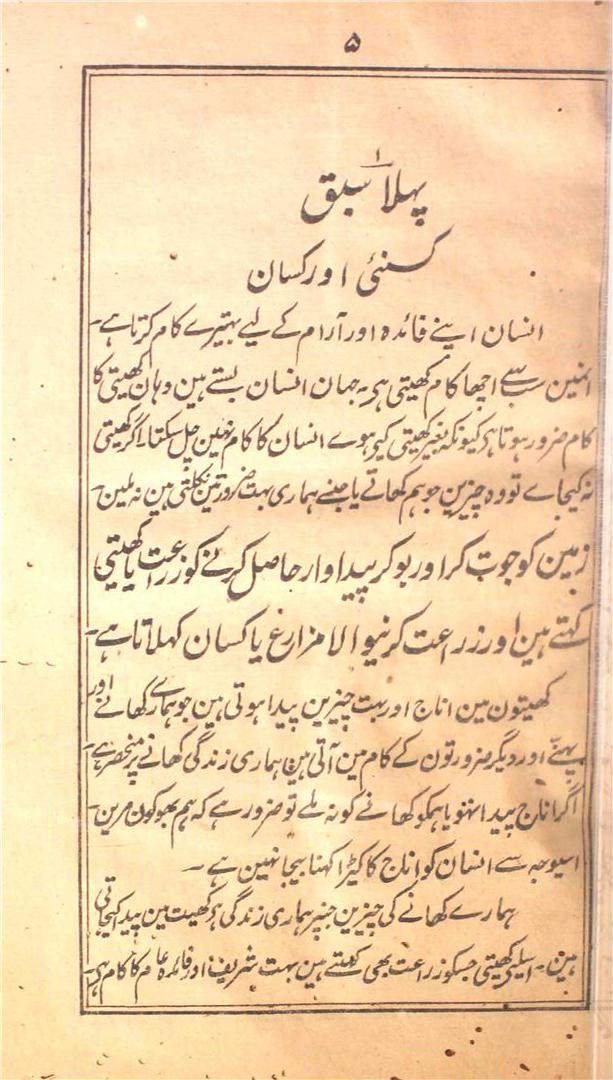 ۵
۱
پہلا سبق
کسنئی اور کسان
انسان اپنے فائدہ اور آرام کے لیے بہتیرے کام کرتا ہے۔
انمین سب سے اچھا کام کھیتی ہی۔ جہان انسان بستے ہین وہان کھیتی کا
کام ضرور ہوتا ہی کیونکہ بغیر کھیتی کیے ہوے انسان کا کام نہین چل سکتا۔ اگر کھیتی
نہ کیجاے تو وہ چیزین جو ہم کھاتے یا جنسے ہماری بہت ضرورتین نکلتی ہین نہ ملین۔
زمین کو جوت کر اور بو کر پیداوار حاصل کرنے کو زراعت یا کھیتی
کہتے ہین اور زراعت کرنیوالا مزارع یا کسان کہلاتا ہے۔
کھیتون مین اناج اور بہت چیزین پیدا ہوتی ہین جو ہمارے کھانے اور
پہننے اور دیگر ضرورتون کے کام مین آتی ہین ہماری زندگی کھانے پر منحصر ہے
اگر اناج پیدا نہو یا ہمکو کھانے کو نہ ملے تو ضرور ہے کہ ہم بھوکون مرین۔
اسیوجہ سے انسان کو اناج کا کیڑا کہنا بیجا نہین ہے۔
ہمارے کھانے کی چیزین جنپر ہماری زندگی ہی کھیت مین پیدا کیجاتی
ہین۔ اسلیے کھیتی جسکو زراعت بھی کہتے ہین بہت شریف اور فائدہ عام کا کام ہی۔